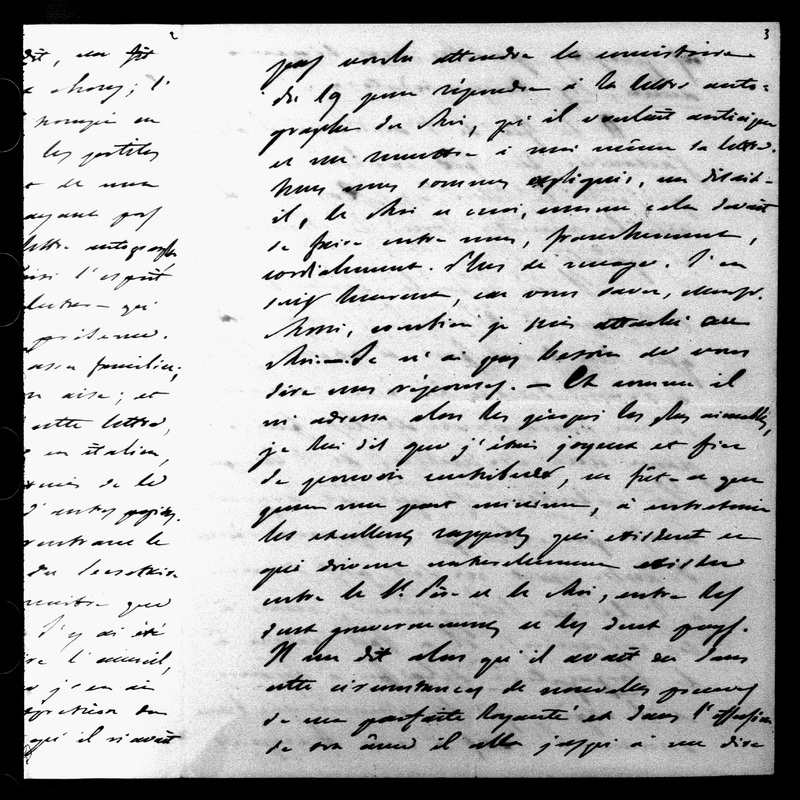 2
dit, en fût
a chose; l'
les petites
et de mon
ayant pas
lettre autographe
l'esprit
présence.
assez familier,
aise; et
cette lettre,
en italien,
d'autres papiers.
rentrant le
du Secrétaire
que
J'y ai été
l'accueil,
j'en ai
qu'il n'avait
3
pas voulu attendre le consistoire
du 19 pour répondre à la lettre auto=
graphe du Roi, qu'il voulait anticiper
et me remettre à moi même sa lettre.
Nous nous sommes expliqués, me disait-
il, le Roi et moi, comme cela devait
se faire entre nous, franchement,
cordialement. Plus de nuages. J'en
suis heureux, car vous savez, Monsr.
combien je suis attaché au
Roi. — Je n'ai pas besoin de vous
dire mes réponses. — Et comme il
m'adressa alors les propos les plus aimables,
je lui dit que j'étais joyeux et fier
de pouvoir contribuer, ne fût-ce que
pour une part minime, à entretenir
les excellents rapports qui existent et
qui doivent naturellement exister
entre le St. Père et le Roi, entre les
deux gouvernements et les deux pays.
Il me dit alors qu'il avait eu dans
cette circonstances de nouvelles preuves
de ma parfaite loyauté et dans l'effusion
de son âme il alla jusqu'à me dire